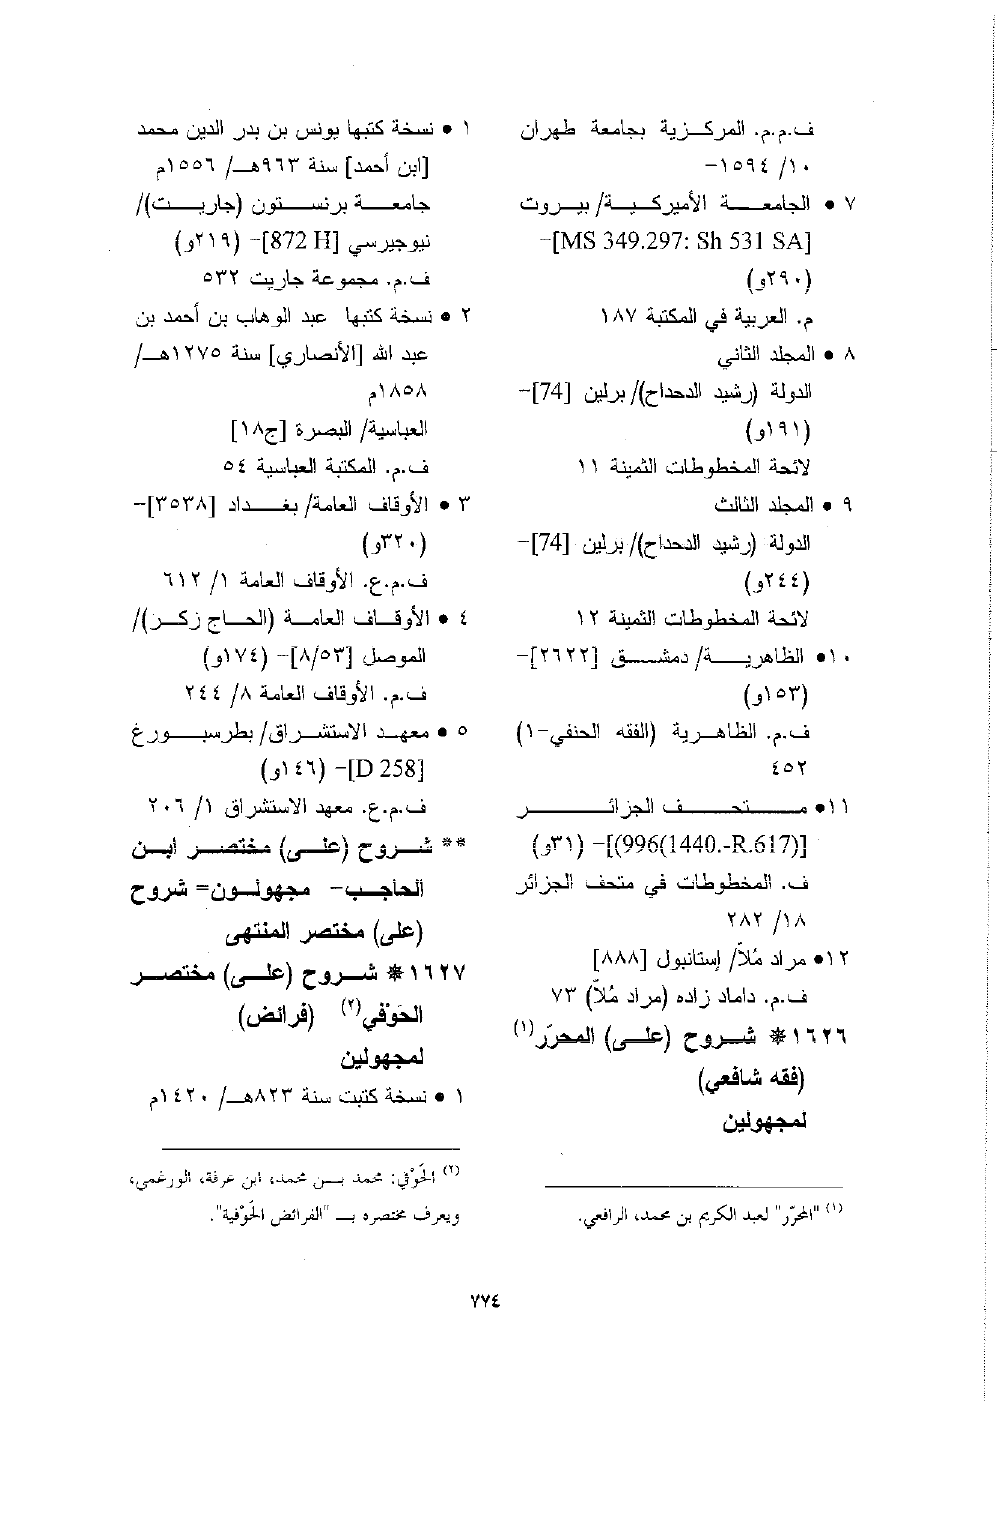 ف.م.م. المركزية بجامعة طهران
١٠/ ١٥٩٤-
٧ • الجامعة الأميركية/ بيروت
[MS 349.297: Sh 531 SA]-
(٢٩٠و)
م. العربية في المكتبة ١٨٧
٨ • المجلد الثاني
الدولة (رشيد الدحداح)/ برلين [74]-
(١٩١و)
لائحة المخطوطات الثمينة ١١
٩ • المجلد الثالث
الدولة (رشيد الدحداح)/ برلين [74]-
(٢٤٤و)
لائحة المخطوطات الثمينة ١٢
١٠• الظاهرية/ دمشق [٢٦٢٢]-
(١٥٣و)
ف.م. الظاهرية (الفقه الحنفي-١)
٤٥٢
١١• متحف الجزائر
[(996(1440.-R.617)]- (٣١و)
ف. المخطوطات في متحف الجزائر
١٨/ ٢٨٢
١٢• مراد مُلاّ/ إستانبول [٨٨٨]
ف.م. داماد زاده (مراد مُلاّ) ٧٣
١٦٢٦* شروح (على) المحرّر(١)
(فقه شافعي)
لمجهولين
(١) "المحرّر" لعبد الكريم بن محمد، الرافعي.
١ • نسخة كتبها يونس بن بدر الدين محمد
[ابن أحمد] سنة ٩٦٣هـ/ ١٥٥٦م
جامعة برنستون (جاريت)/
نيوجيرسي [872 H]- (٢١٩و)
ف.م. مجموعة جاريت ٥٣٢
٢ • نسخة كتبها عبد الوهاب بن أحمد بن
عبد الله [الأنصاري] سنة ١٢٧٥هـ/
١٨٥٨م
العباسية/ البصرة [ج١٨]
ف.م. المكتبة العباسية ٥٤
٣ • الأوقاف العامة/ بغداد [٣٥٣٨]-
(٣٢٠و)
ف.م.ع. الأوقاف العامة ١/ ٦١٢
٤ • الأوقاف العامة (الحاج زكر)/
الموصل [٨/٥٣]- (١٧٤و)
ف.م. الأوقاف العامة ٨/ ٢٤٤
٥ • معهد الاستشراق/ بطرسبورغ
[D 258]- (١٤٦و)
ف.م.ع. معهد الاستشراق ١/ ٢٠٦
** شروح (على) مختصر ابن
الحاجب- مجهولون= شروح
(على) مختصر المنتهى
١٦٢٧* شروح (على) مختصر
الحَوْفي(٢) (فرائض)
لمجهولين
١ • نسخة كتبت سنة ٨٢٣هـ/ ١٤٢٠م
(٢) الحَوْفي: محمد بن محمد، ابن عرفة، الورغمي،
ويعرف مختصره بـ "الفرائض الحَوْفية".
٧٧٤